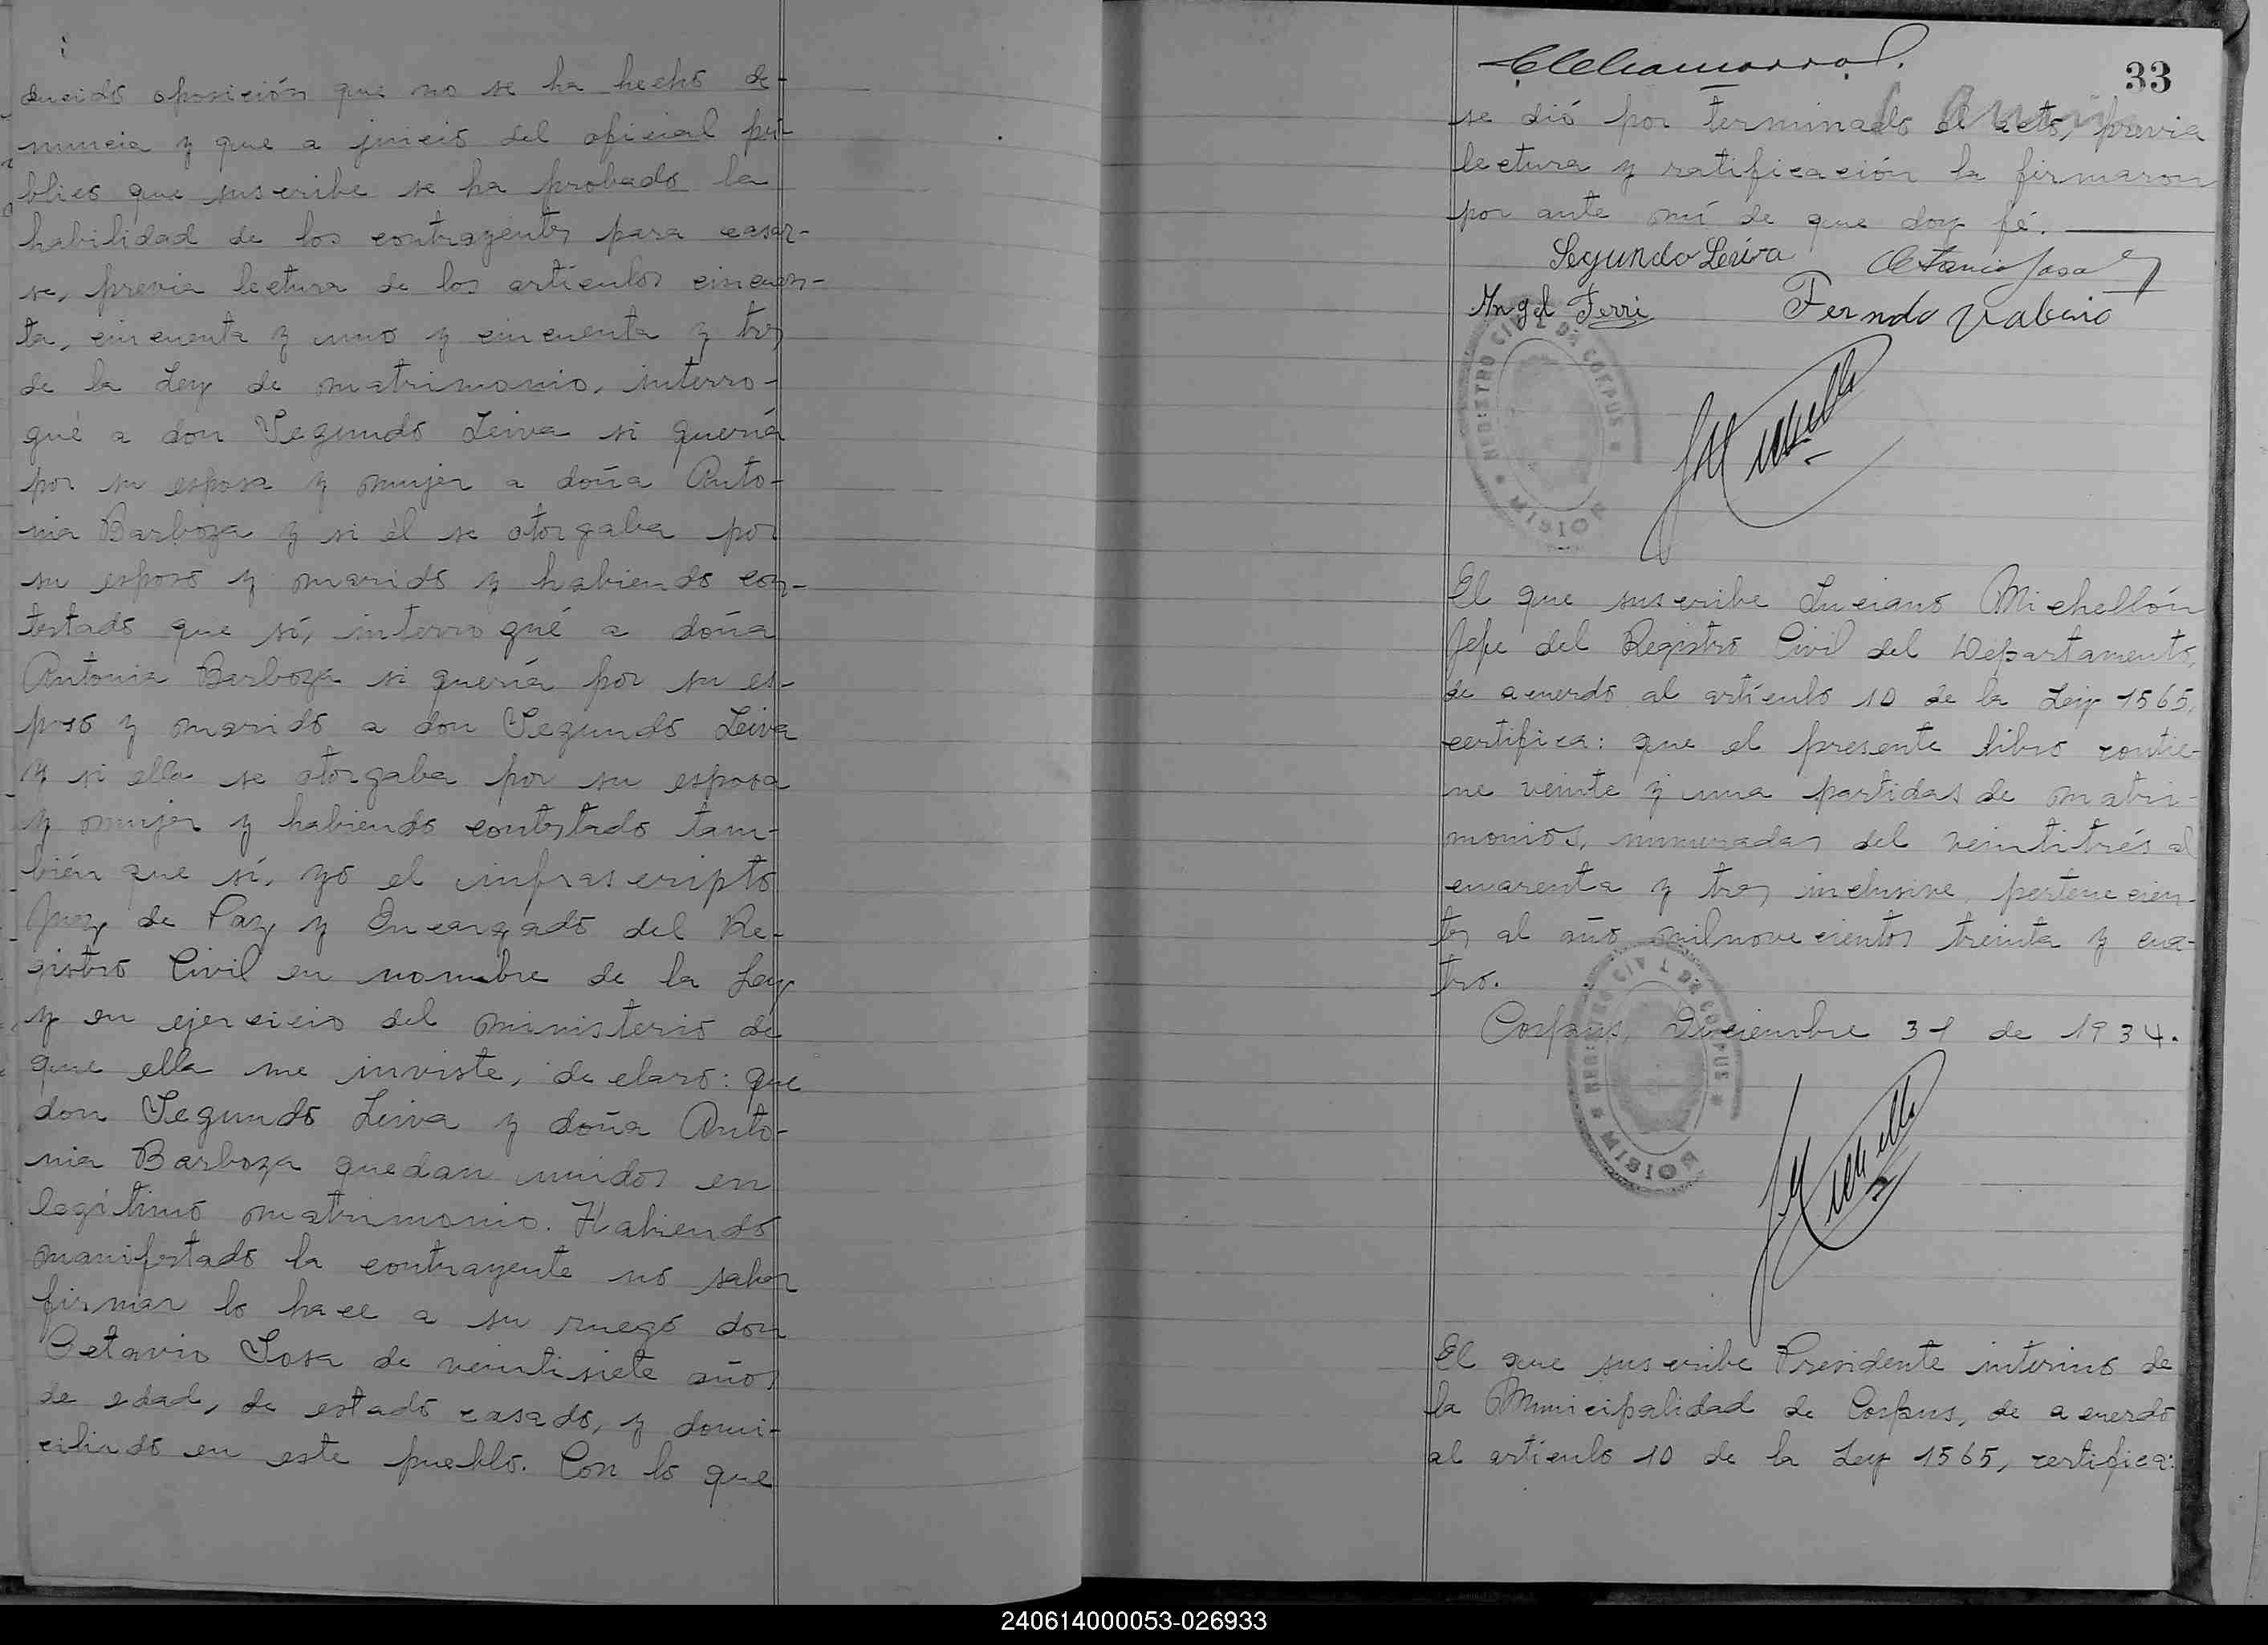 ducido oposición que no se ha hecho de-
nuncia y que a juicio del oficial pú-
blico que suscribe se ha probado la
habilidad de los contrayentes para casar-
se, previa lectura de los artículos cincuen-
ta, cincuenta y uno y cincuenta y tres
de la Ley de matrimonio, interro-
gué a don Segundo Leiva si quería
por su esposa y mujer a doña Anto-
nia Barboza y si él se otorgaba por
su esposo y marido y habiendo con-
testado que sí, interrogué a doña
Antonia Barboza si quería por su es-
poso y marido a don Segundo Leiva
y si ella se otorgaba por su esposa
y mujer y habiendo contestado tam-
bién que sí, yo el infrascripto
Juez de Paz y Encargado del Re-
gistro Civil en nombre de la Ley
y en ejercicio del ministerio de
que ella me inviste, declaro: que
don Segundo Leiva y doña Anto-
nia Barboza quedan unidos en
legítimo matrimonio. Habiendo
manifestado la contrayente no saber
firmar lo hace a su ruego don
Octavio Sosa de veintisiete años
de edad, de estado casado, y domi-
ciliado en este pueblo. Con lo que
33
se dió por terminado el acto, previa
lectura y ratificación la firmaron
por ante mí de que doy fé.
Segundo Leiva Octavio Sosa
Angel Ferri Ferndo
REGISTRO CIVIL DE CORPUS
MISIONES
El que suscribe Luciano Michellón
Jefe del Registro Civil del Departamento,
de acuerdo al artículo 10 de la Ley 1565,
certifica: que el presente libro contie-
ne veinte y una partidas de matri-
monios, numeradas del veintitrés al
cuarenta y tres inclusive, pertenecien-
tes al año mil novecientos treinta y cua-
tro.
Corpus, Diciembre 31 de 1934.
REGISTRO CIVIL DE CORPUS
MISIONES
El que suscribe Presidente interino de
la Municipalidad de Corpus, de acuerdo
al artículo 10 de la Ley 1565, certifica:
240614000053-026933